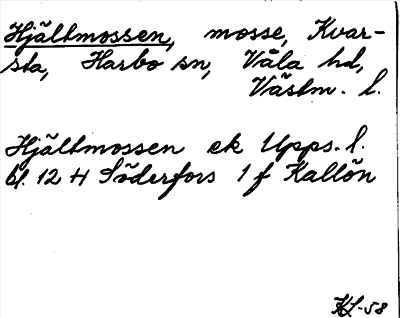 Hjältmossen, mosse, Kvar-
sta, Harbo sn, Våla hd,
Västm. l.
Hjältmossen ek Upps. l.
bl. 12 H Söderfors 1 f Kallön
KL-58